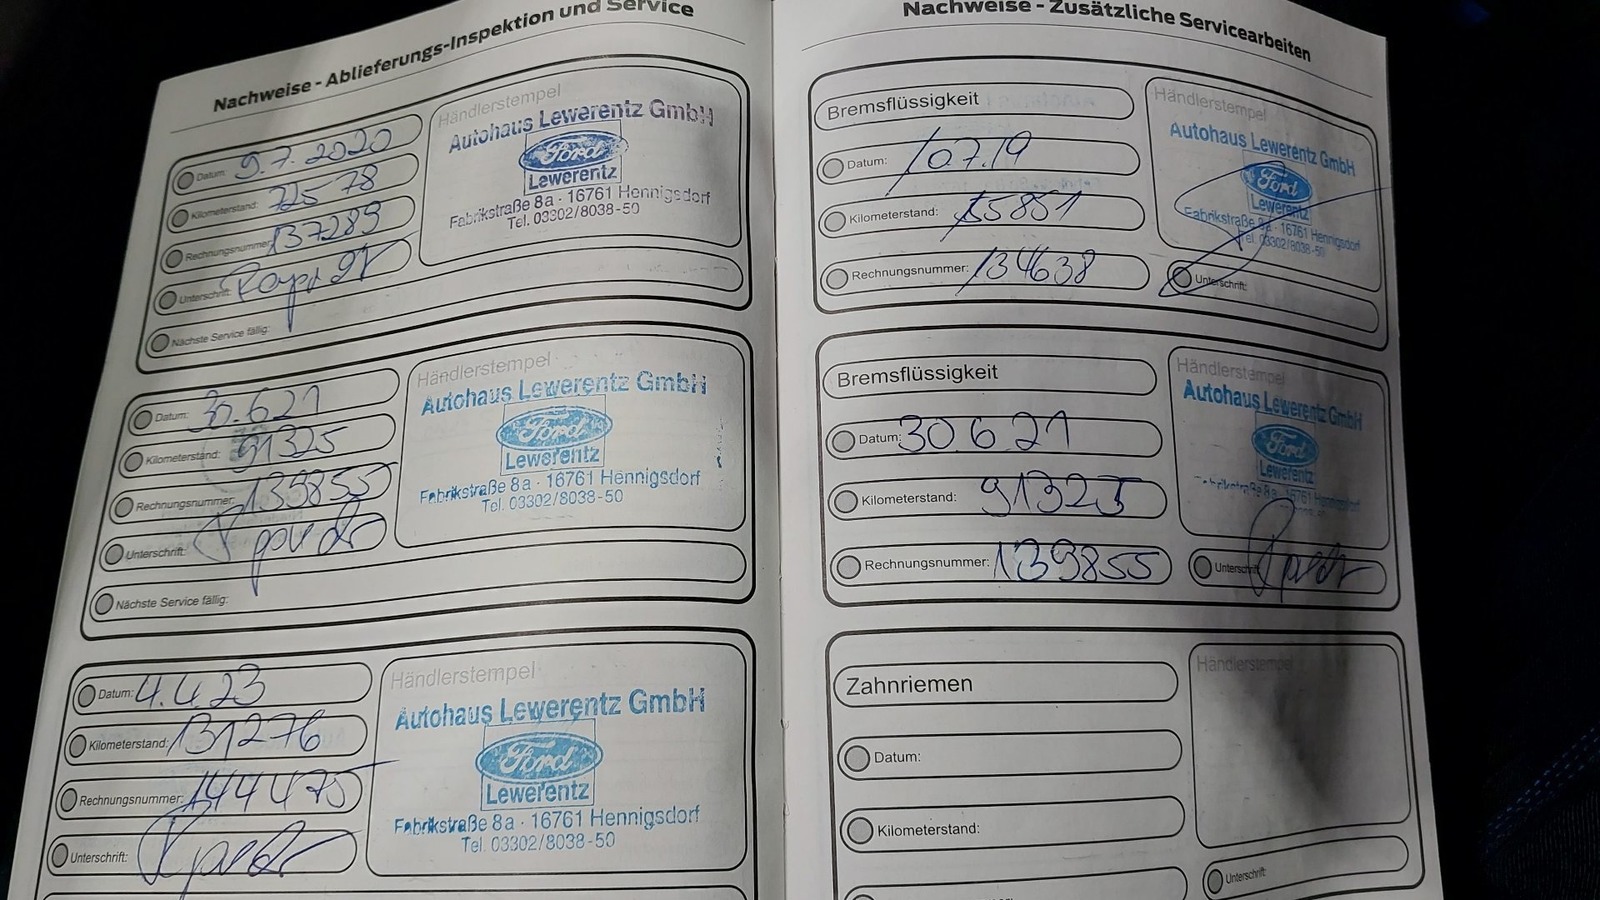 Nachweise - Ablieferungs-Inspektion und Service
Händlerstempel
Autohaus Lewerentz GmbH
Ford
Lewerentz
Fabrikstraße 8a · 16761 Hennigsdorf
Tel. 03302/8038-50
Datum: 9.7.2020
Kilometerstand: 72578
Rechnungsnummer: 137289
Unterschrift:
Nächste Service fällig:
Händlerstempel
Autohaus Lewerentz GmbH
Ford
Lewerentz
Fabrikstraße 8a · 16761 Hennigsdorf
Tel. 03302/8038-50
Datum: 30.6.21
Kilometerstand: 91325
Rechnungsnummer: 139855
Unterschrift:
Nächste Service fällig:
Händlerstempel
Autohaus Lewerentz GmbH
Ford
Lewerentz
Fabrikstraße 8a · 16761 Hennigsdorf
Tel. 03302/8038-50
Datum: 4.4.23
Kilometerstand: 131276
Rechnungsnummer: 144475
Unterschrift:
Nachweise - Zusätzliche Servicearbeiten
Bremsflüssigkeit
Datum: 07.19
Kilometerstand:
Rechnungsnummer: 134638
Händlerstempel
Autohaus Lewerentz GmbH
Ford
Lewerentz
Fabrikstraße 8a · 16761 Hennigsdorf
Tel. 03302/8038-50
Unterschrift:
Bremsflüssigkeit
Datum: 30 6 21
Kilometerstand: 91325
Rechnungsnummer: 139855
Händlerstempel
Autohaus Lewerentz GmbH
Ford
Lewerentz
Fabrikstraße 8a · 16761 Hennigsdorf
Unterschrift:
Zahnriemen
Datum:
Kilometerstand:
Händlerstempel
Unterschrift: